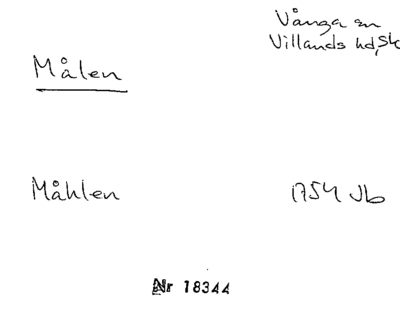 Vånga sn
Villands hd, Sk
Målen
Måhlen 1754 Jb
Nr 18344